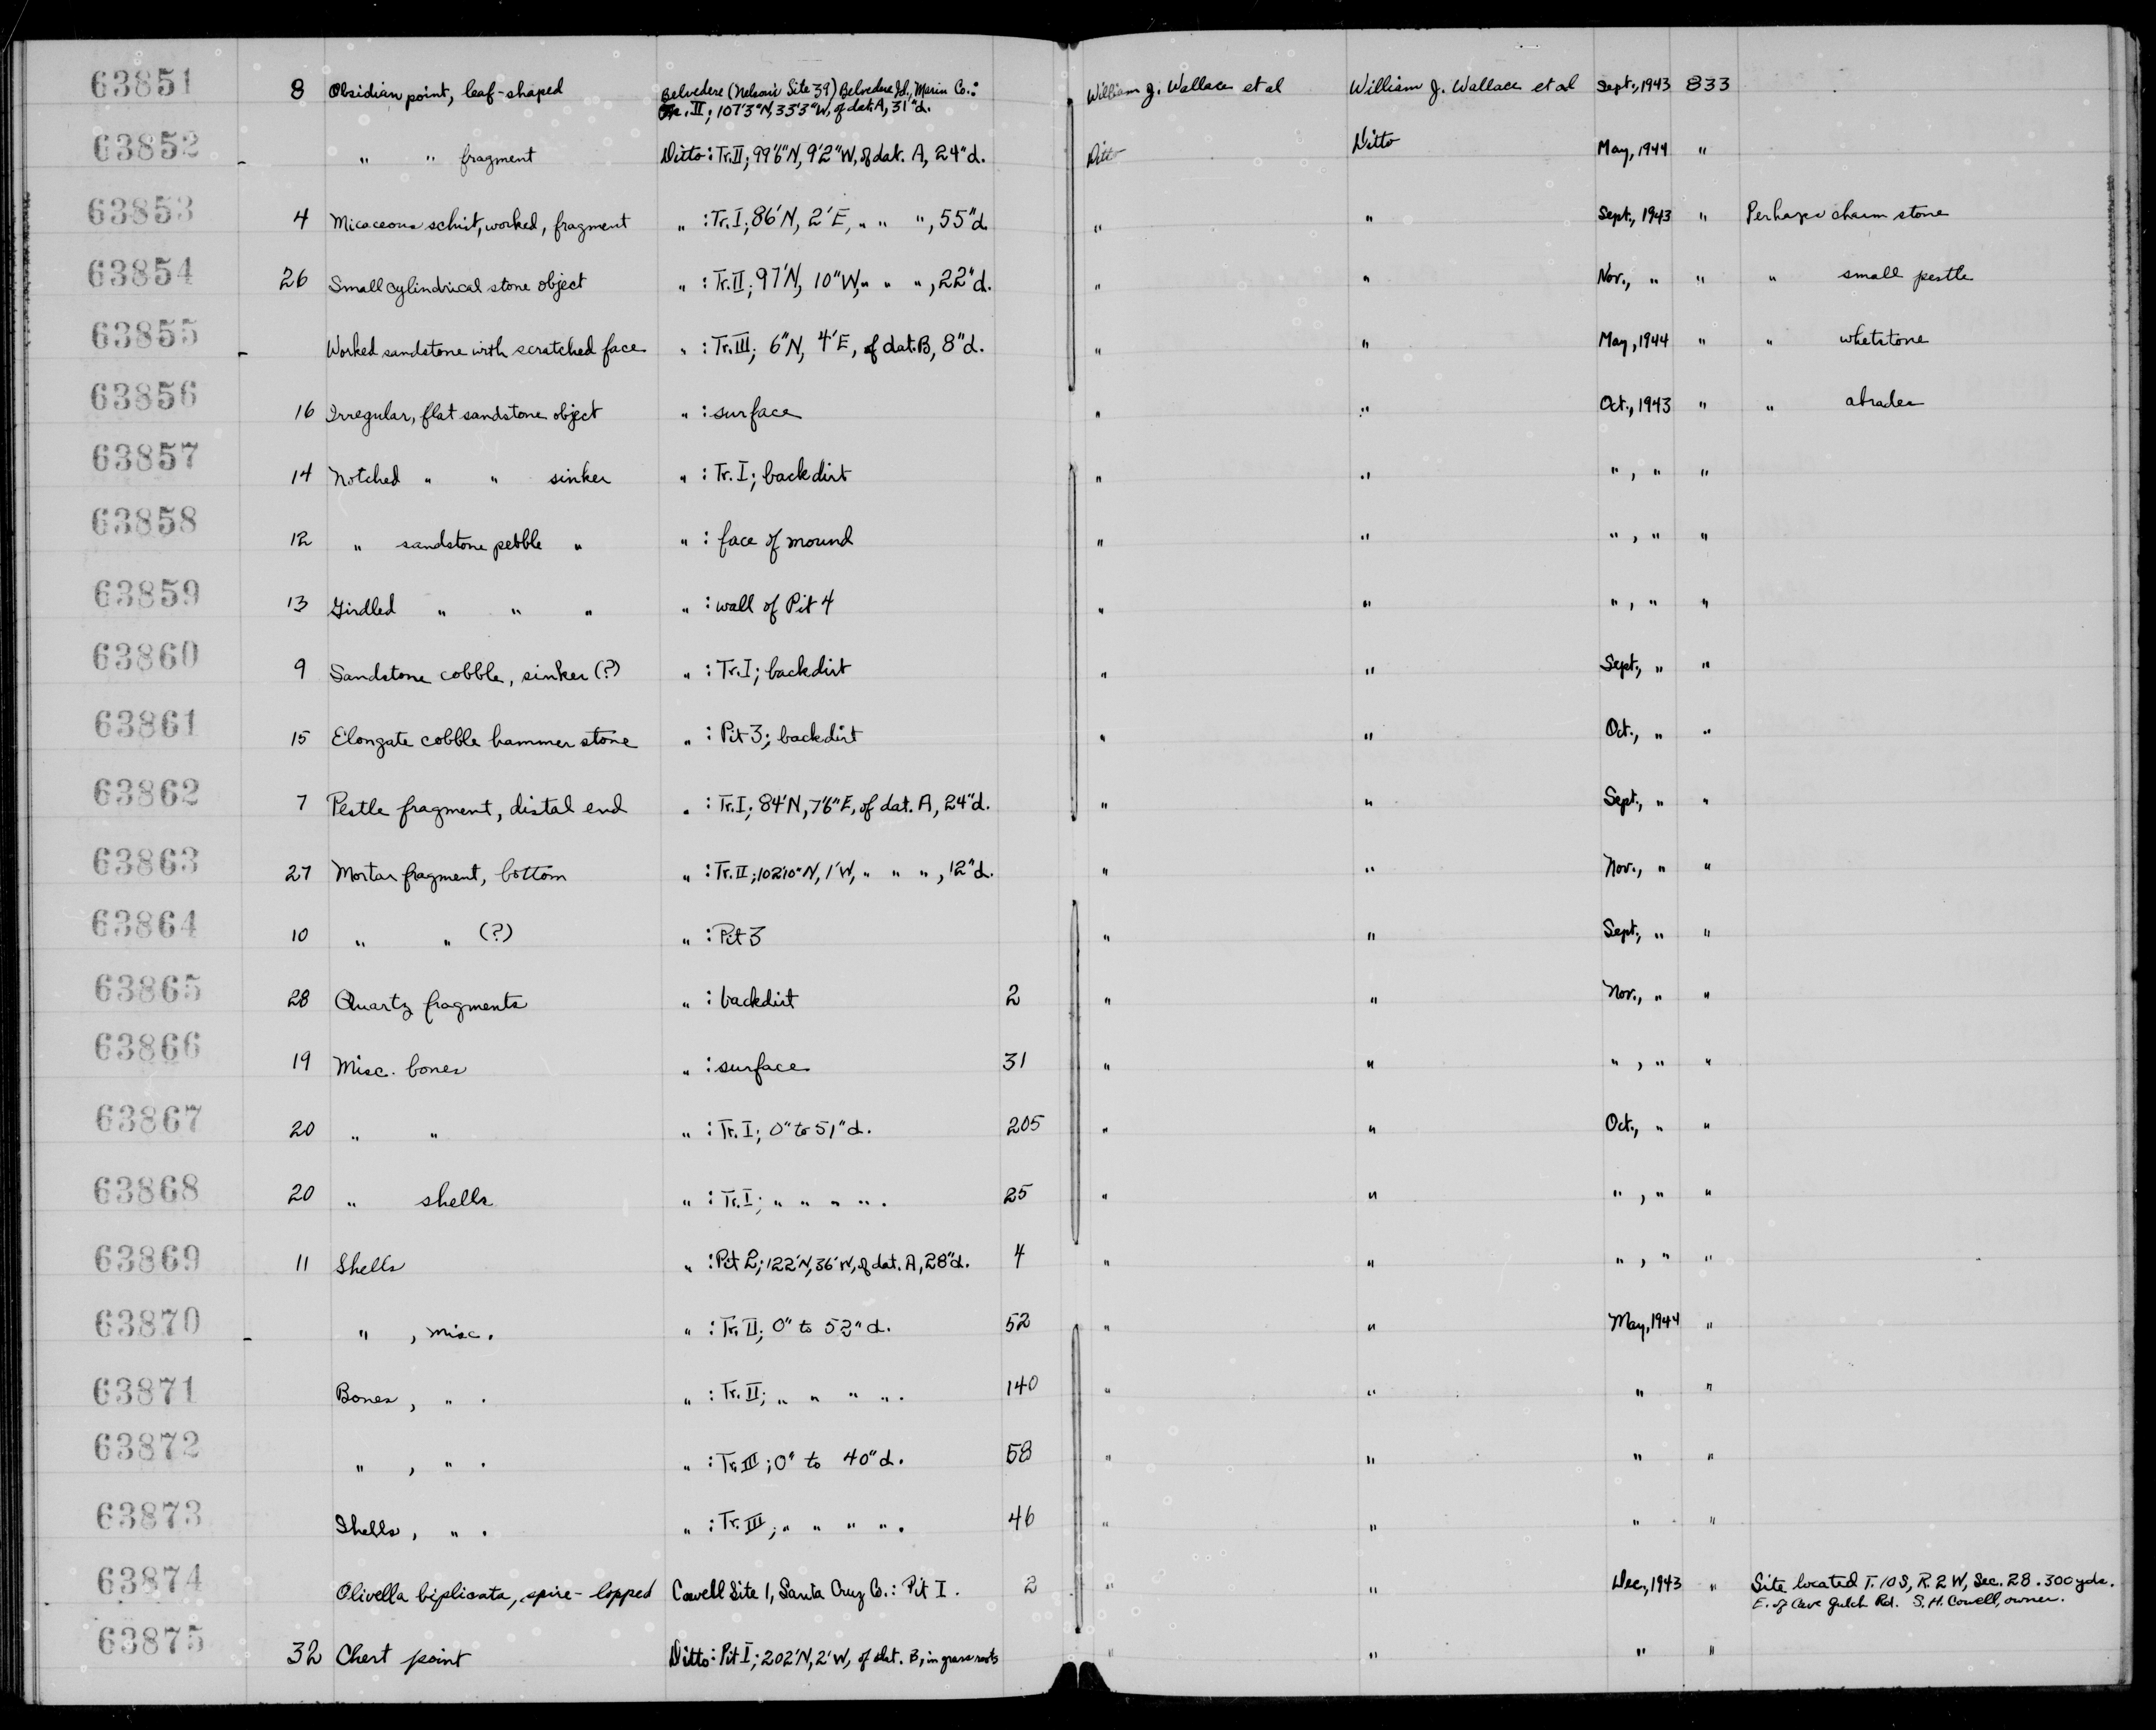 63851 8 Obsidian point, leaf-shaped Belvedere (Nelson's Site 39) Belvedere Id., Marin Co.: William J. Wallace et al William J. Wallace et al Sept., 1943 833
Tr. II; 107'3"N, 33'3"W, of dat. A, 31"d.
63852 - " " fragment Ditto: Tr. II; 99'6"N, 9'2"W, of dat. A, 24"d. Ditto Ditto May, 1944 "
63853 4 Micaceous schist, worked, fragment " : Tr. I; 86'N, 2'E, " " ", 55"d. " " Sept., 1943 " Perhaps charm stone
63854 26 Small cylindrical stone object " : Tr. II; 97'N, 10"W, " " ", 22"d. " " Nov., " " " small pestle
63855 - Worked sandstone with scratched face " : Tr. III; 6"N, 4'E, of dat. B, 8"d. " " May, 1944 " " whetstone
63856 16 Irregular, flat sandstone object " : surface " " Oct., 1943 " " abrader
63857 14 Notched " " sinker " : Tr. I; backdirt " " " , " "
63858 12 " sandstone pebble " " : face of mound " " " , " "
63859 13 Girdled " " " " : wall of Pit 4 " " " , " "
63860 9 Sandstone cobble, sinker (?) " : Tr. I; backdirt " " Sept., " "
63861 15 Elongate cobble hammer stone " : Pit 3; backdirt " " Oct., " "
63862 7 Pestle fragment, distal end " : Tr. I; 84'N, 7'6"E, of dat. A, 24"d. " " Sept., " "
63863 27 Mortar fragment, bottom " : Tr. II; 102'10"N, 1'W, " " ", 12"d. " " Nov., " "
63864 10 " " (?) " : Pit 3 " " Sept., " "
63865 28 Quartz fragments " : backdirt 2 " " Nov., " "
63866 19 Misc. bones " : surface 31 " " " , " "
63867 20 " " " : Tr. I; 0" to 51"d. 205 " " Oct., " "
63868 20 " shells " : Tr. I; " " " ". 25 " " " , " "
63869 11 Shells " : Pit 2; 122'N, 36'W, of dat. A, 28"d. 4 " " " , " "
63870 - " , misc. " : Tr. II; 0" to 52"d. 52 " " May, 1944 "
63871 Bones, " . " : Tr. II; " " " ". 140 " " " "
63872 " , " . " : Tr. III; 0" to 40"d. 58 " " " "
63873 Shells, " . " : Tr. III; " " " ". 46 " " " "
63874 Olivella biplicata, spire-lopped Cowell Site 1, Santa Cruz Co.: Pit I. 2 " " Dec., 1943 " Site located T. 10 S, R. 2 W, Sec. 28. 300 yds.
E. of Cave Gulch Rd. S. H. Cowell, owner.
63875 32 Chert point Ditto: Pit I; 202'N, 2'W, of dat. B, in grass roots " " " "